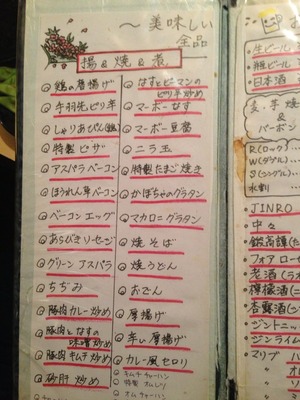 〜美味しい
全品
揚&焼&煮
鶏の唐揚げ
手羽先ピリ辛
特製ピザ
アスパラベーコン
ほうれん草ベーコン
ベーコンエッグ
あらびきソーセージ
グリーンアスパラ
ちぢみ
豚肉カレー炒め
豚肉となすの
味噌炒め
豚肉キムチ炒め
砂肝炒め
はすとピーマンの
ピリ辛炒め
マーボーなす
マーボー豆腐
ニラ玉
特製たまご焼き
かぼちゃのグラタン
マカロニグラタン
焼そば
焼うどん
おでん
厚揚げ
辛い厚揚げ
カレー風セロリ
キムチチャーハン
特製オムレツ
生ビール
瓶ビール
日本酒
麦・芋焼
&
バーボン
R(ロック)
W(ダブル)
S(シングル)
水割
JINRO
中々
フォアロー
老酒
檸檬酒
杏露酒
ジントニッ
ジンライム
マリブ